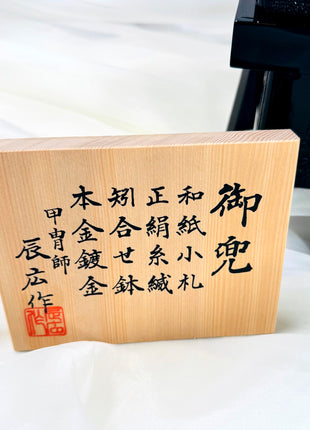 御兜
和紙小札
正絹糸縅
矧合せ鉢
本金鍍金
甲冑師
辰広作